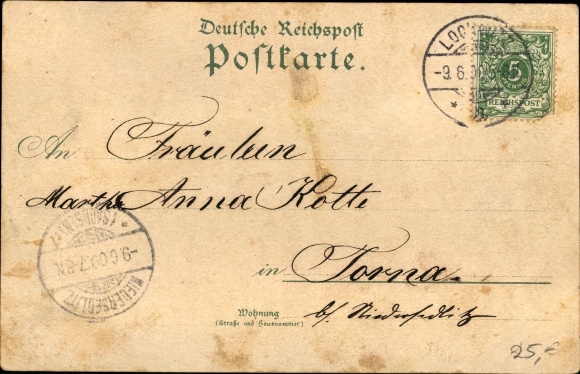 Deutsche Reichspost
Postkarte.
-9.6.
5
REICHSPOST
An Fräulein
Martha Anna Kotte
in Torna
b/ Niedersedlitz
Wohnung
(Straße und Hausnummer)
(SACHSEN)
-9.6.00.7-8N.
NIEDERSEDLITZ
25,€